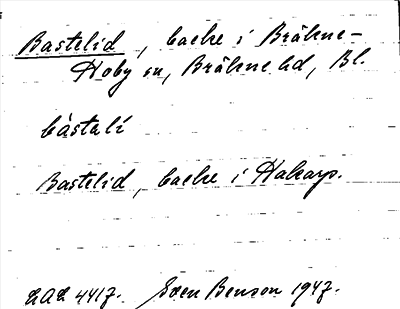 Bastelid, backe i Bräkne-
Hoby sn, Bräkne hd, Bl.
bàstalí
Bastelid, backe i Hakarp.
LAL 4417. Sven Benson 1947.